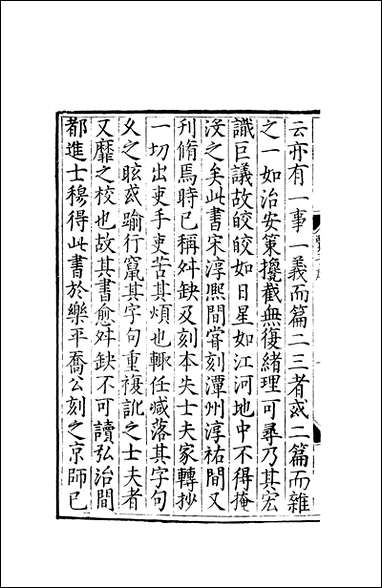 云亦有一事一義而篇二三者或二篇而雜
之一如治安策攙截無復緒理可尋乃其宏
識巨議故皎皎如日星如江河地中不得掩
没之矣此書宋淳熙間甞刻潭州淳祐間又
刊脩焉時已稱舛缺及刻本失士夫家轉抄
一切出吏手吏苦其煩也輙任減落其字句
久之眩或踰行竄其字句重複訛之士夫者
又靡之校也故其書愈舛缺不可讀弘治間
都進士穆得此書於樂平喬公刻之京師已